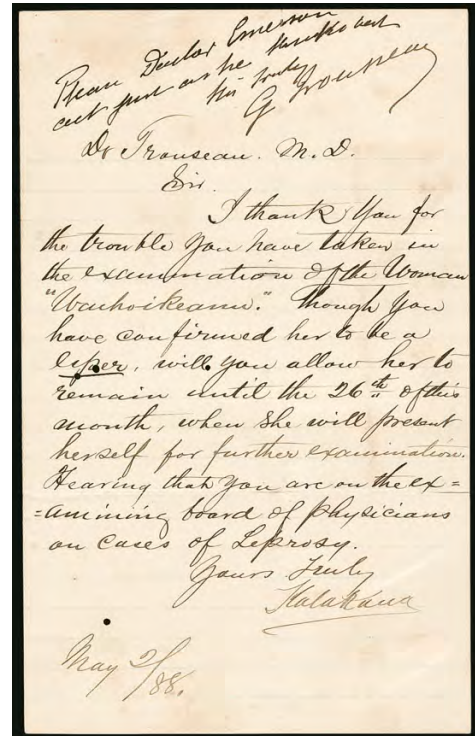 Please Doctor Emerson
act just as he thinks best
his truly
G Trousseau
Dr Trouseau. M. D.
Sir.
I thank You for
the trouble You have taken in
the examination of the Woman
though You
have confirmed her to be a
leper, will you allow her to
remain until the 26th of this
month, when she will present
herself for further examination.
Hearing that you are on the ex=
=amining board of physicians
on cases of Leprosy.
Yours Truly
Kalakaua
May 2/88.